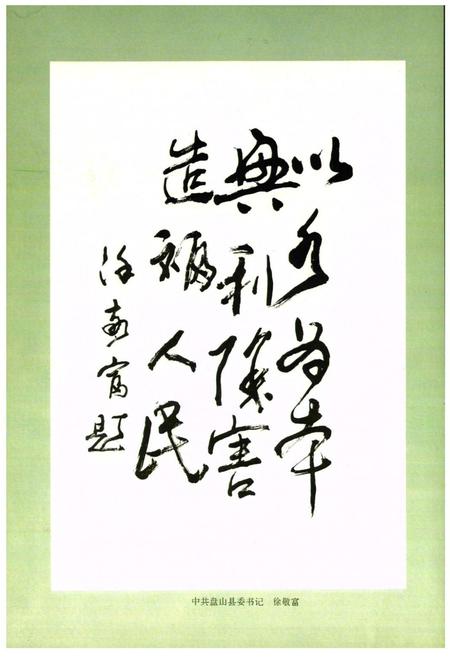 以水为本
兴利除害
造福人民
徐敬富题
中共盘山县委书记 徐敬富